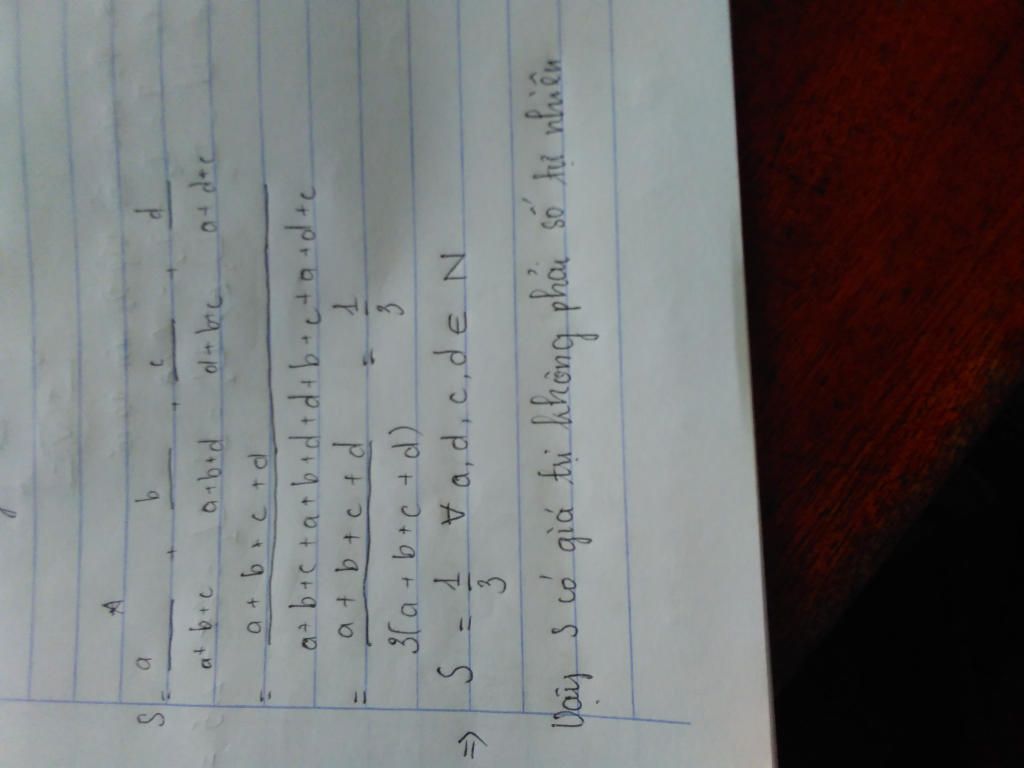 S = a/(a+b+c) + b/(a+b+d) + c/(d+b+c) + d/(a+d+c)
= (a+b+c+d)/(a+b+c+a+b+d+d+b+c+a+d+c)
= (a+b+c+d)/(3(a+b+c+d)) = 1/3
⇒ S = 1/3 ∀ a,d,c,d ∈ N
Vậy S có giá trị không phải số tự nhiên